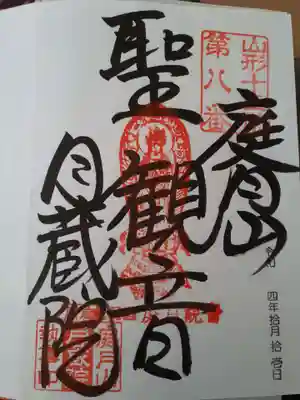 山形十
第八番
庭月山
聖観音
月蔵院
令和
四年拾月拾壱日